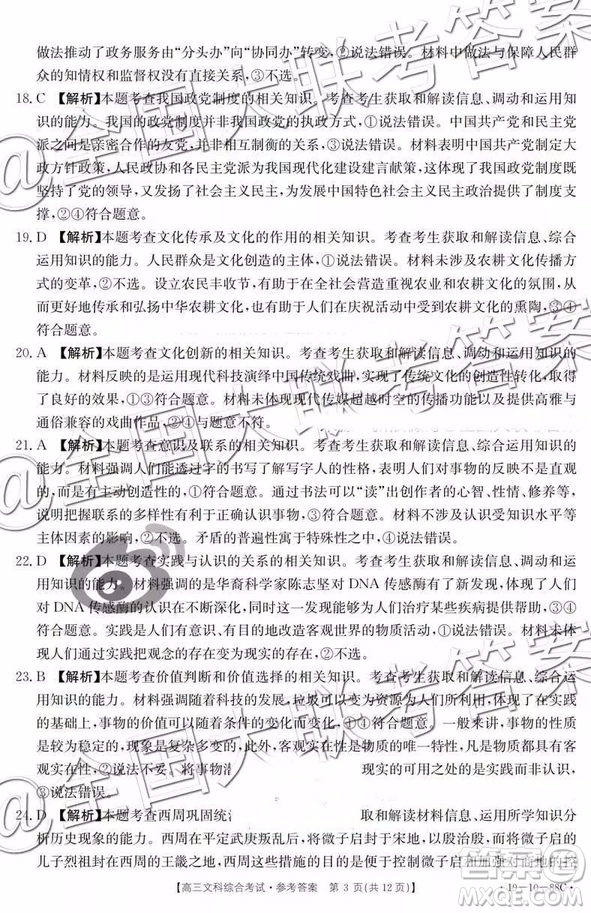 做法推动了政务服务由“分头办”向“协同办”转变,②说法错误。材料中的做法与保障人民群
众的知情权和监督权没有直接关系,③不选。
18. C 【解析】本题考查我国政党制度的相关知识。考查考生获取和解读信息、调动和运用知
识的能力。我国的政党制度并非政党的执政方式,①说法错误。中国共产党和民主党
派之间是亲密合作的友党,并非相互制衡的关系,③说法错误。材料表明中国共产党制定大
政方针政策,人民政协和各民主党派为我国现代化建设建言献策,表明我国的政党制度既
坚持了党的领导,又发扬了社会主义民主,为发展中国特色社会主义民主政治提供了支
撑,②④符合题意。
19. D 【解析】本题考查文化传承及文化的作用的相关知识。考查考生获取和解读信息、综合
运用知识的能力。人民群众是文化创造的主体,①说法错误。材料未涉及农耕文化传播方
式的变革,②不选。设立农民丰收节,有助于在全社会营造重视农业和农耕文化的氛围,从
而更好地传承和弘扬中华农耕文化,也有助于人们在庆祝活动中受到农耕文化的熏陶,③④
符合题意。
20. A 【解析】本题考查文化创新的相关知识。考查考生获取和解读信息、调动和运用知识的
能力。材料反映的是运用现代科技演绎中国传统戏曲,实现了传统文化的创造性转化,取得
了良好的效果,①③符合题意。材料未体现现代传媒超越时空的传播功能以及提供高雅与
通俗兼容的戏曲作品,②④不符合题意。
21. A 【解析】本题考查意识及联系的相关知识。考查考生获取和解读信息、综合运用知识的
能力。材料强调人们能透过文字学习了解书写字人的性格,表明人们对事物的反映不是直观
的,而是有主动创造性的,①符合题意。通过书法可以“读”出创作者的心智、性情、修养等,
说明把握联系的多样性有利于正确认识事物,③符合题意。联系不会因主体因素的影响等
主体因素的影响,②不选。矛盾的普遍性寓于特殊性之中,④说法错误。
22. D 【解析】本题考查实践与认识的关系的相关知识。考查考生获取和解读信息、调动和运
用知识的能力。材料强调的是华裔科学家陈志坚对DNA传感酶有了新发现,体现了人们
对DNA传感酶的认识在不断深化,同时这一发现能够为人们治疗某些疾病提供帮助,③④
符合题意。实践是人们有意识、有目的地改造客观世界的物质活动,①说法错误。材料未体
现通过实践把观念的存在变为现实的存在,②不选。
23. B 【解析】本题考查价值判断和价值选择的相关知识。考查考生获取和解读信息、综合运
用知识的能力。材料强调随着科技的发展,垃圾可以变为有用之物,这说明人们在实践
的基础上,事物的价值可以随着条件的变化而变化,①④符合题意。一般来讲,事物的本质是
较为稳定的,现象是复杂多变的,并非现象的变化性决定着事物的本质,而是事物的本质决定现
象,②说法不妥。将事物 现实的可用之处的是实践而非认识,
③说法错误。
24. D 【解析】本题考查西周巩固统 取和解读材料信息、运用所学知识分
析历史现象的能力。西周在平定武庚叛乱后,将微子启封于宋地,以治殷后,殷商后裔微子启的
儿子烈祖封在西周的王畿之地,西周统治者这样做的目的是
高三文科综合考试·参考答案 第 3 页(共 12 页)
·19-10-88C·
@全国大联考答案